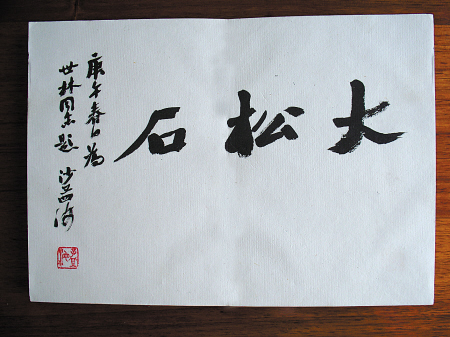 大松石
庚午春日为
世林同志题 沙孟海